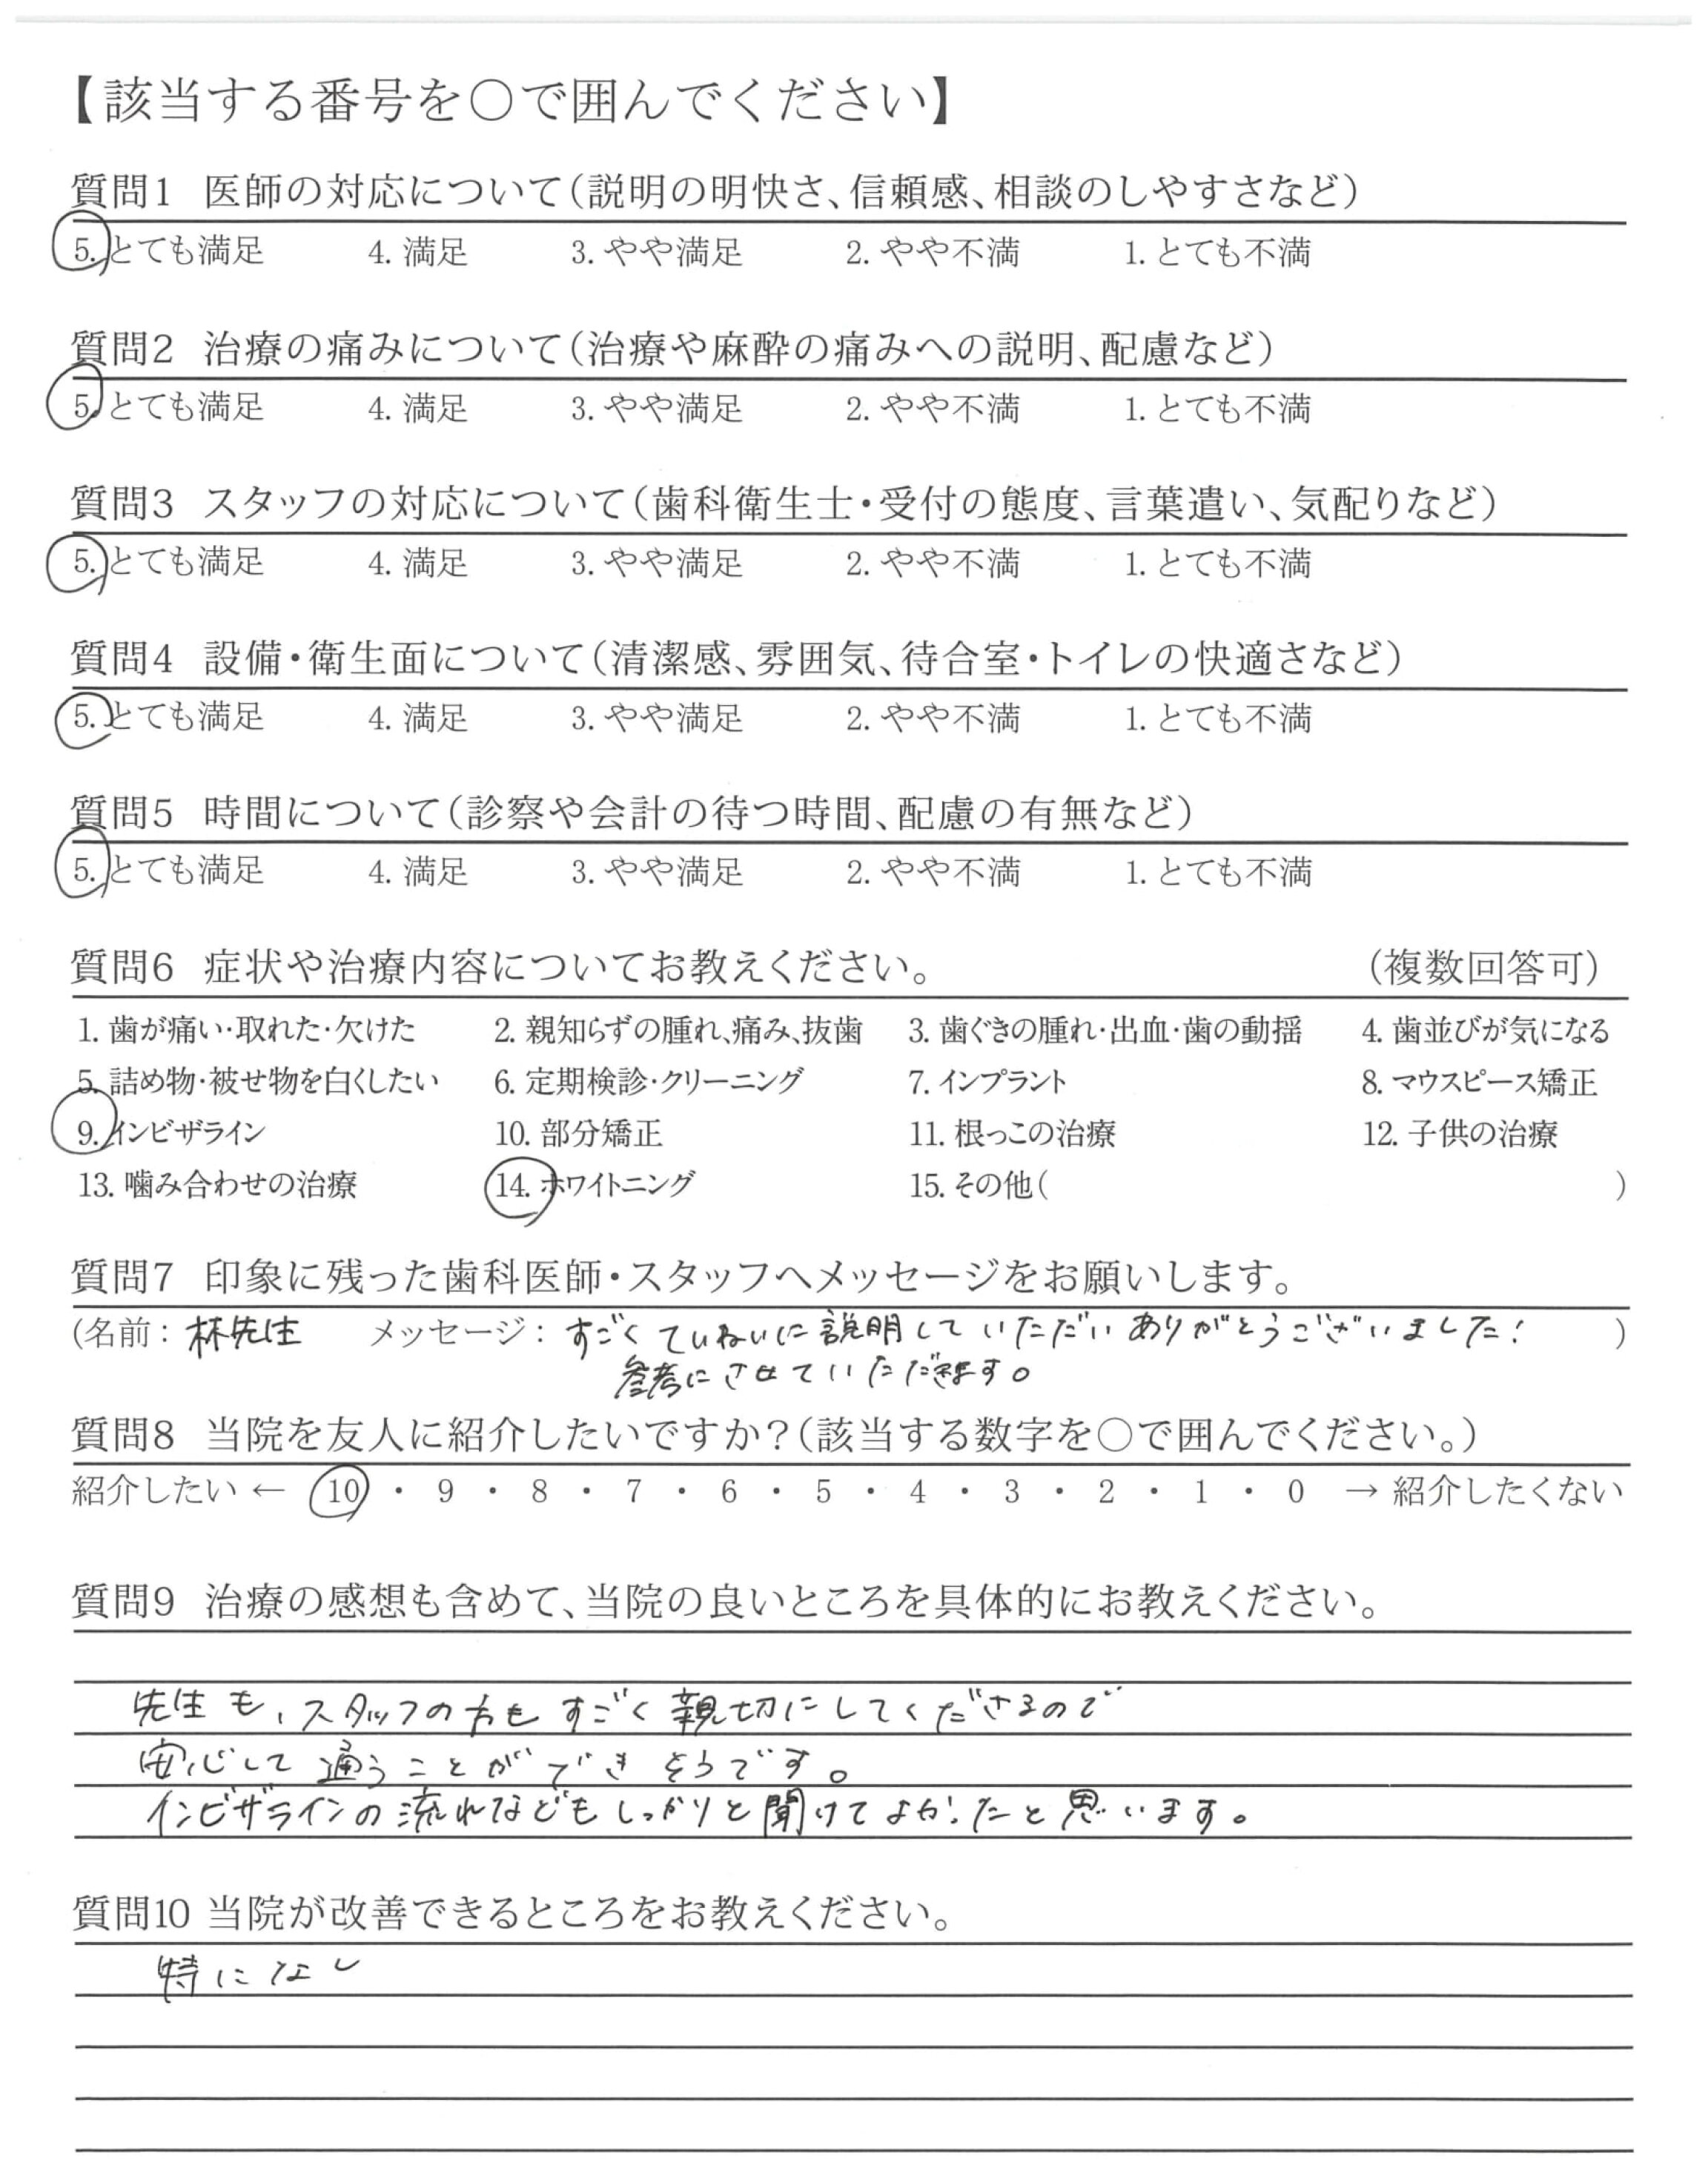 【該当する番号を○で囲んでください】
質問1 医師の対応について(説明の明快さ、信頼感、相談のしやすさなど)
5. とても満足 4. 満足 3. やや満足 2. やや不満 1. とても不満
質問2 治療の痛みについて(治療や麻酔の痛みへの説明、配慮など)
5. とても満足 4. 満足 3. やや満足 2. やや不満 1. とても不満
質問3 スタッフの対応について(歯科衛生士・受付の態度、言葉遣い、気配りなど)
5. とても満足 4. 満足 3. やや満足 2. やや不満 1. とても不満
質問4 設備・衛生面について(清潔感、雰囲気、待合室・トイレの快適さなど)
5. とても満足 4. 満足 3. やや満足 2. やや不満 1. とても不満
質問5 時間について(診察や会計の待つ時間、配慮の有無など)
5. とても満足 4. 満足 3. やや満足 2. やや不満 1. とても不満
質問6 症状や治療内容についてお教えください。 (複数回答可)
1. 歯が痛い・取れた・欠けた 2. 親知らずの腫れ、痛み、抜歯 3. 歯ぐきの腫れ・出血・歯の動揺 4. 歯並びが気になる
5. 詰め物・被せ物を白くしたい 6. 定期検診・クリーニング 7. インプラント 8. マウスピース矯正
9. インビザライン 10. 部分矯正 11. 根っこの治療 12. 子供の治療
13. 噛み合わせの治療 14. ホワイトニング 15. その他( )
質問7 印象に残った歯科医師・スタッフへメッセージをお願いします。
(名前: 林先生 メッセージ: すごくていねいに説明していただいありがとうございました! )
参考にさせていただきます。
質問8 当院を友人に紹介したいですか?(該当する数字を○で囲んでください。)
紹介したい ← 10 ・ 9 ・ 8 ・ 7 ・ 6 ・ 5 ・ 4 ・ 3 ・ 2 ・ 1 ・ 0 → 紹介したくない
質問9 治療の感想も含めて、当院の良いところを具体的にお教えください。
先生も、スタッフの方もすごく親切にしてくださるので
安心して通うことができそうです。
インビザラインの流れなどもしっかりと聞けてよかったと思います。
質問10 当院が改善できるところをお教えください。
特になし